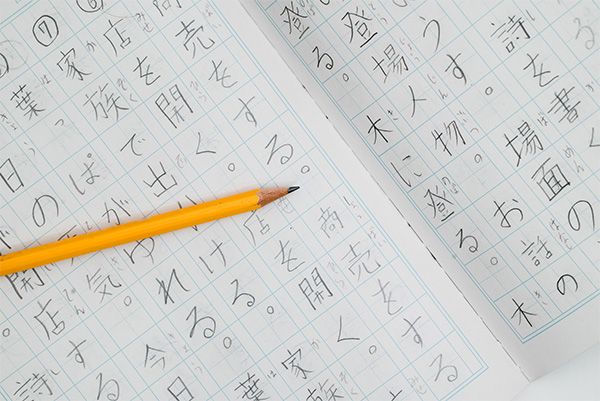 る
詩を書く
うす。場面の
登場人物。お話の
登る。木に登る。木
売をする。商売をする
店を開く。店を開く。
家族で出ける。家族
⑦
葉っぱがゆれる。葉
日の気。今日
開店する
詩